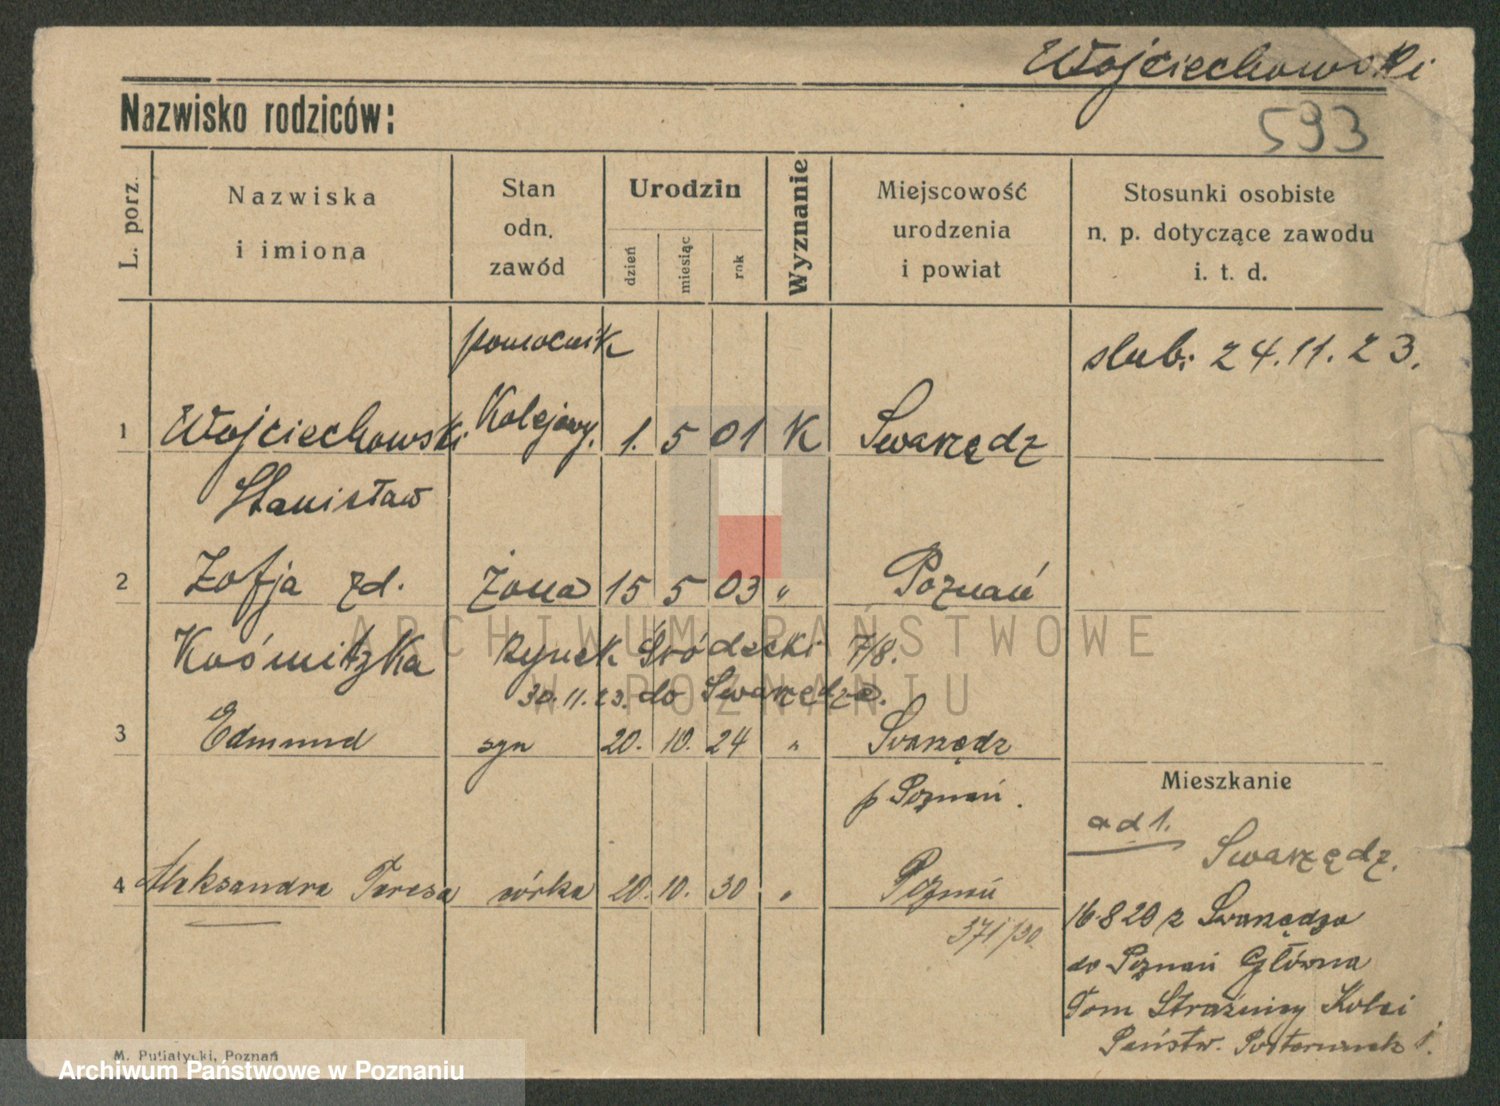 Wojciechowski
Nazwisko rodziców:
593
L. porz.
Nazwiska
i imiona
Stan
odn.
zawód
Urodzin
dzień
miesiąc
rok
Wyznanie
Miejscowość
urodzenia
i powiat
Stosunki osobiste
n. p. dotyczące zawodu
i. t. d.
pomocnik
slub: 24.11.23.
1 Wojciechowski Kolejowy. 1. 5 01 K Swarzędz
Stanisław
2 Zofja zd. Żona 15 5 03 " Poznań
Kośmitzka Rynek Śródecki 7/8.
30.11.23. do Swarzędza.
3 Edmund syn 20. 10. 24 " Swarzędz
p Poznań.
Mieszkanie
ad 1.
Swarzędz.
4 Aleksandra Teresa córka 20. 10. 30 " Poznań
371/30.
16.8 29 z Swarzędza
do Poznań Główna
Dom Strażniczy Kolei
Państw. Posterunek 1.
M. Putiatycki, Poznań
ARCHIWUM PAŃSTWOWE
W POZNANIU
Archiwum Państwowe w Poznaniu